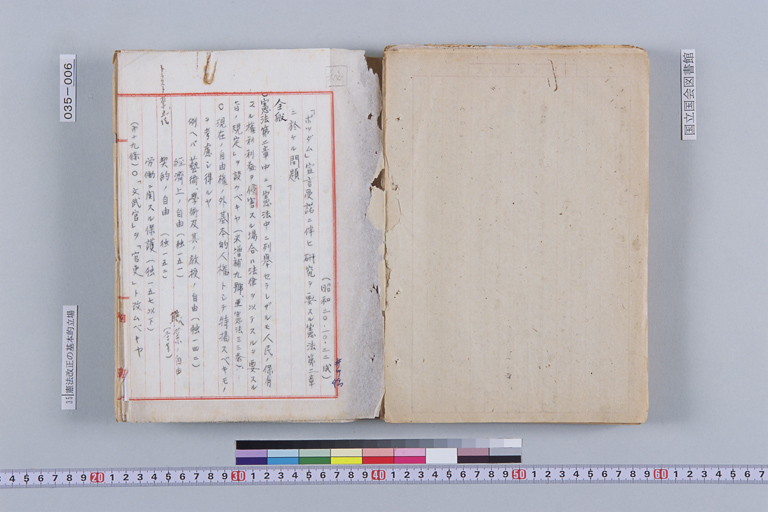 （昭和二〇・一〇・二二 成）
「ポツダム」宣言受諾ニ伴ヒ研究ヲ要スル憲法第二章
ニ於ケル問題
全般
憲法第二章中ニ「憲法中ニ列挙セラレザルモ人民ノ保有
スル権利利益ヲ侵害スル場合ハ法律ヲ以テスルヲ要スル
旨ノ規定」ヲ設クベキヤ
〇現在ノ自由権ノ外基本的人権トシテ特掲スベキモノ
ヲ考慮シ得ルヤ
例ヘバ 藝術、學術及其ノ教授ノ自由（独一四二）
経済上ノ自由（独一五一）
契約ノ自由（独一五二）
労働ニ関スル保護（独一五七以下）
（第十九條）〇「文武官」ヲ「官吏」ト改ムベキヤ
035-006
国立国会図書館
15 憲法改正の基本的立場
20 30 40 50 60